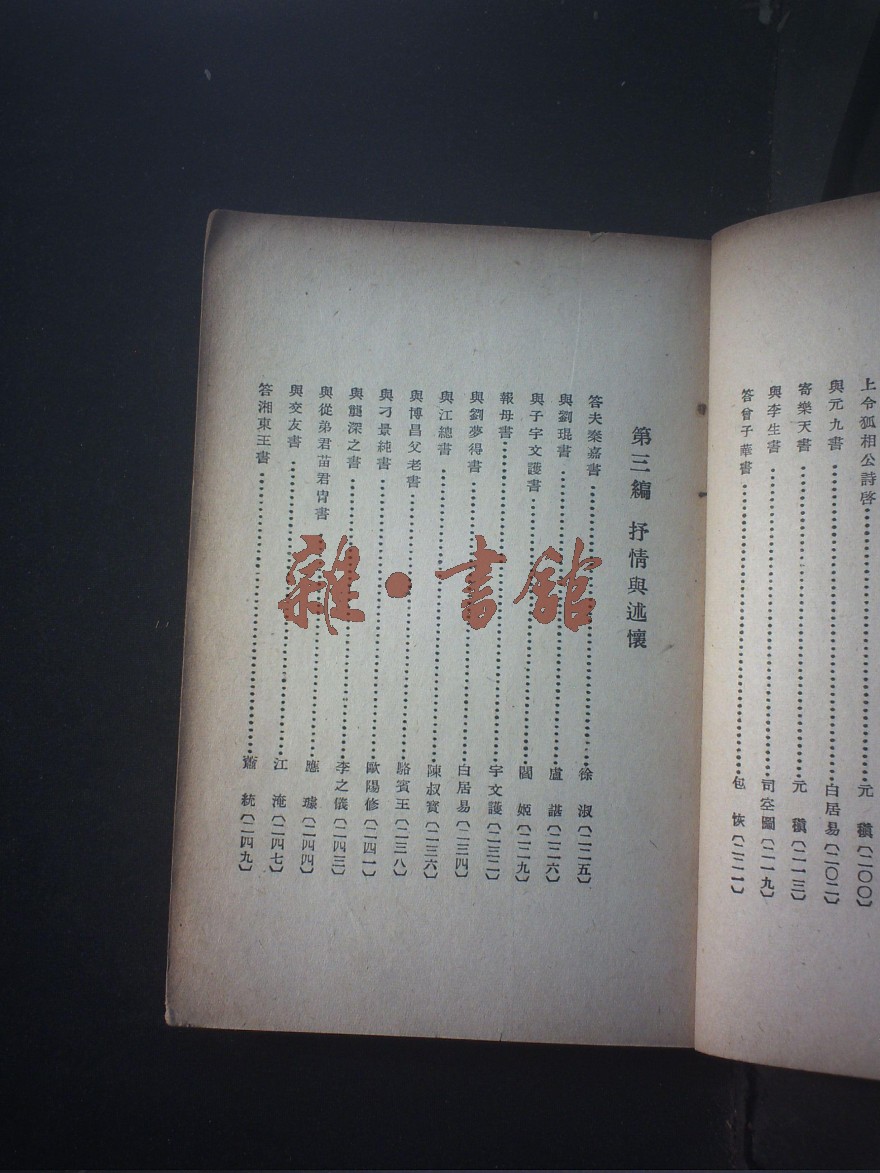 上令狐相公詩啓……元 稹〔二〇〇〕
與元九書……白居易〔二〇二〕
寄樂天書……元 稹〔二一三〕
與李生書……司空圖〔二一九〕
答曾子華書……包 恢〔二二一〕
第三編 抒情與述懷
答夫秦嘉書……徐 淑〔二二五〕
與劉琨書……盧 諶〔二二六〕
與子宇文護書……閻 姬〔二二九〕
報母書……宇文護〔二三二〕
與劉夢得書……白居易〔二三四〕
與江總書……陳叔寶〔二三六〕
與博昌父老書……駱賓王〔二三八〕
與刁景純書……歐陽修〔二四一〕
與龔深之書……李之儀〔二四三〕
與從弟君苗君冑書……應 璩〔二四四〕
與交友書……江 淹〔二四七〕
答湘東王書……蕭 統〔二四九〕
雜·書館